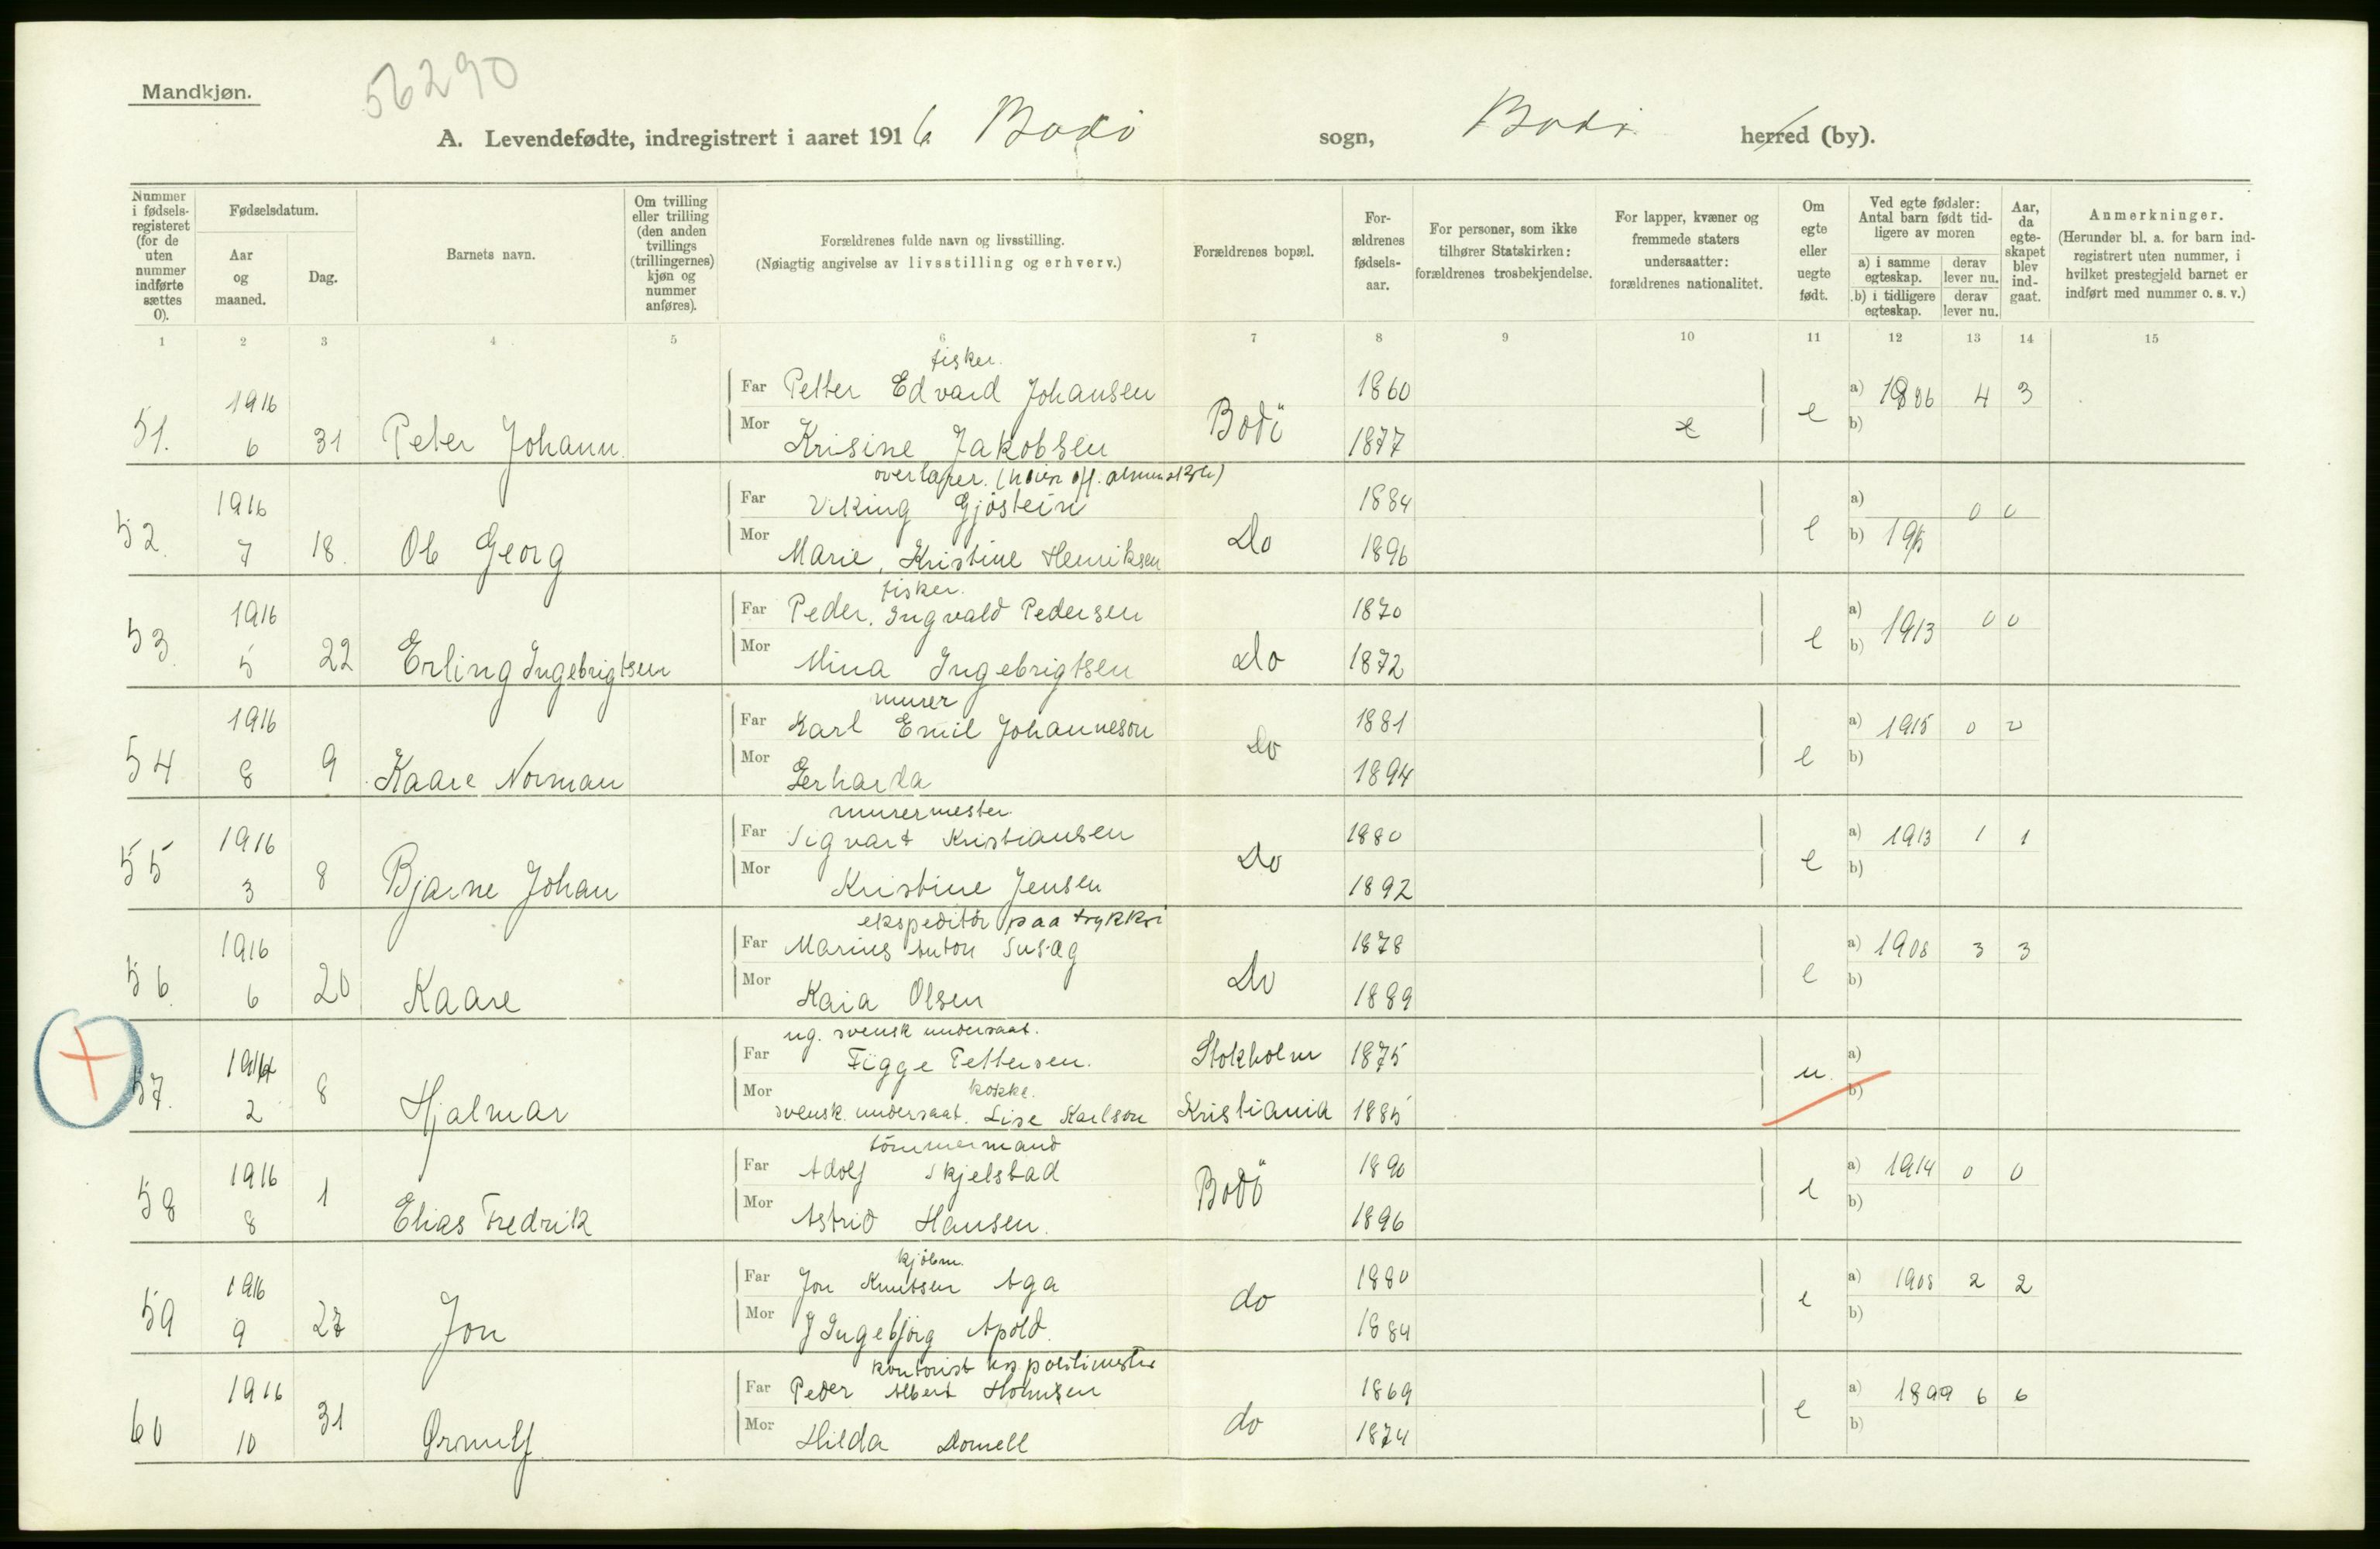 Mandkjøn.
56290
A. Levendefødte, indregistrert i aaret 1916 Bodö sogn, Bodö herred (by).
Nummer i fødselsregisteret (for de uten nummer indførte sættes 0).
Fødselsdatum.
Aar og maaned.
Dag.
Barnets navn.
Om tvilling eller trilling (den anden tvillings (trillingernes) kjøn og nummer anføres).
Forældrenes fulde navn og livsstilling.
(Nøiagtig angivelse av livsstilling og erhverv.)
Forældrenes bopæl.
Forældrenes fødselsaar.
For personer, som ikke tilhører Statskirken: forældrenes trosbekjendelse.
For lapper, kvæner og fremmede staters undersaatter: forældrenes nationalitet.
Om egte eller uegte født.
Ved egte fødsler: Antal barn født tidligere av moren
a) i samme egteskap. derav lever nu.
b) i tidligere egteskap. derav lever nu.
Aar, da egteskapet blev indgaat.
Anmerkninger.
(Herunder bl. a. for barn indregistrert uten nummer, i hvilket prestegjeld barnet er indført med nummer o. s. v.)
1 2 3 4 5 6 7 8 9 10 11 12 13 14 15
fisker.
1916 Far Petter Edvard Johansen 1860 a) 1896 4 3
51. 6 31 Peter Johann. Mor Krisine Jakobsen Bodö 1877 e e b)
overlærer.
1916 Far Viking Gjöstein 1884 a) 0 0
52. 7 18. Ole Georg Mor Marie, Kristine Henriksen Do 1896 e b) 1915
fisker.
1916 Far Peder. Ingvald Pedersen 1870 a) 0 0
53. 5 22 Erling Ingebrigtsen Mor Mina Ingebrigtsen Do 1872 e b) 1913
murer
1916 Far Karl Emil Johanneson 1881 a) 1915 0 0
54 8 9 Kaare Norman Mor Gerharda Do 1894 e b)
murermester.
1916 Far Sigvart Kristiansen 1880 a) 1913 1 1
55 3 8 Bjarne Johan Mor Kristine Jensen Do 1892 e b)
ekspeditör paa trykkri
1916 Far Marius Anton Susæg 1878 a) 1908 3 3
56. 6 20 Kaare Mor Kaia Olsen Do 1889 e b)
ug. svensk undersaat.
1914 Far Figge Pettersen. Stokholm 1875 a)
kokke.
57. 2 8 Hjalmar Mor svensk undersaat. Lise Karlson Kristiania 1885 u. b)
tömmermand
1916 Far Adolf Skjelstad 1890 a) 1914 0 0
58 8 1 Elias Fredrik Mor Astrid Hansen. Bodö 1896 e b)
kjöbm.
1916 Far Jon Knutsen Aga 1880 a) 1908 2 2
59 9 27 Jon Mor J Ingebjörg Apold. do 1884 e b)
kontorist hos politimester
1916 Far Peder Albert Holmsen 1869 a) 1899 6 6
60 10 31 Ørnulf Mor Hilda Dornell do 1874 e b)